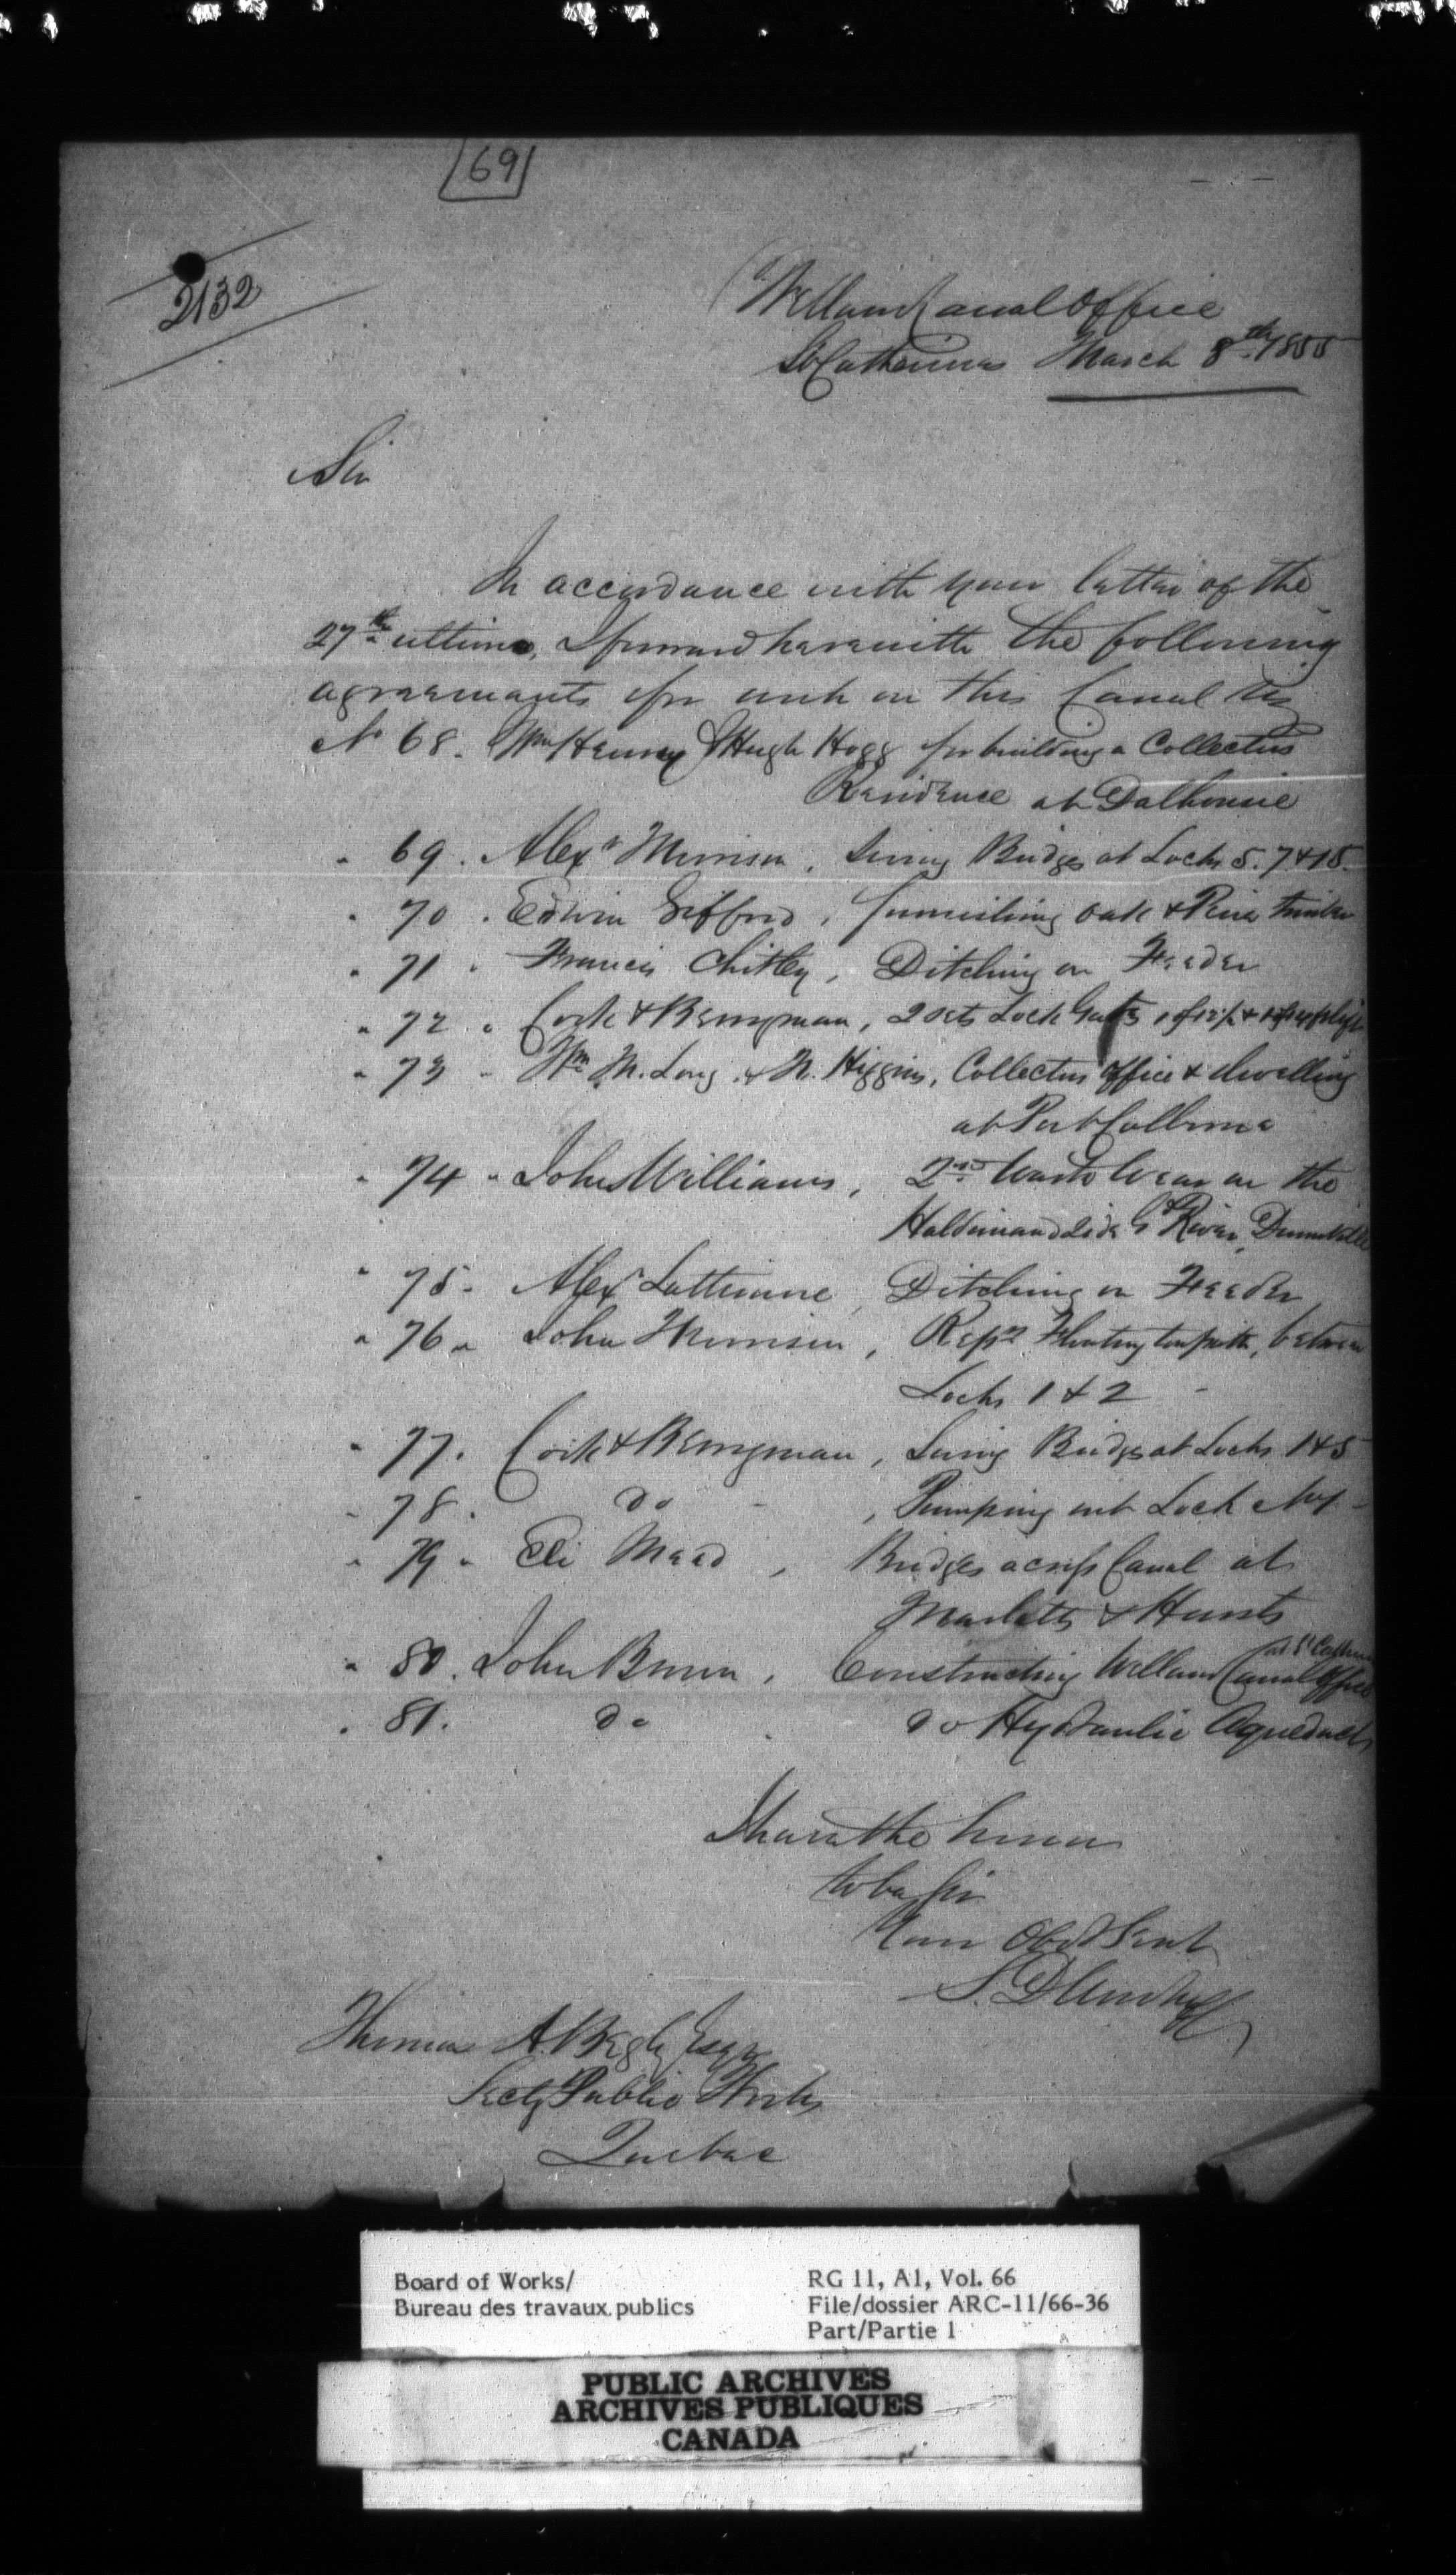 69
2132
Welland Canal Office
St Catherines March 8th 1855
Sir
In accordance with your letter of the
27th ultimo, I forward herewith the following
agreements for work on this Canal viz
No 68. Wm Henry & Hugh Hogg for building a Collectors
Residence at Dalhousie
" 69. Alexr Morrison, Swing Bridges at Locks 5. 7 & 15.
" 70. Edwin Gifford, furnishing Oak & Pine timber
" 71 " Francis Chitley, Ditching on Feeder
" 72 " Cook & Bengman, 2 sets Lock Gates
" 73 " Wm M. Long & N. Higgins, Collectors Office & dwelling
at Port Colborne
" 74 " John Williams, 2nd Waste Wear on the
Haldimand side Gd River, Dunnville
" 75 " Alexr Lattimore, Ditching on Feeder
" 76 " John Morrison, Repg Floating towpath, between
Locks 1 & 2
" 77. Cook & Bengman, Swing Bridge at Locks 1 & 5
" 78. do , Pumping out Lock No 1
" 79 " Eli Mead, Bridges across Canal at
Marlatts & Hursts
" 80. John Brown, Constructing Welland Canal Office at St Catherines
" 81. do do Hydraulic Aqueduct
I have the honor
to be Sir
Your Obedt Servt
S. D. Woodruff
Thomas A. Begly Esqre
Secty Public Works
Quebec
Board of Works/
Bureau des travaux publics
RG 11, A1, Vol. 66
File/dossier ARC-11/66-36
Part/Partie 1
PUBLIC ARCHIVES
ARCHIVES PUBLIQUES
CANADA